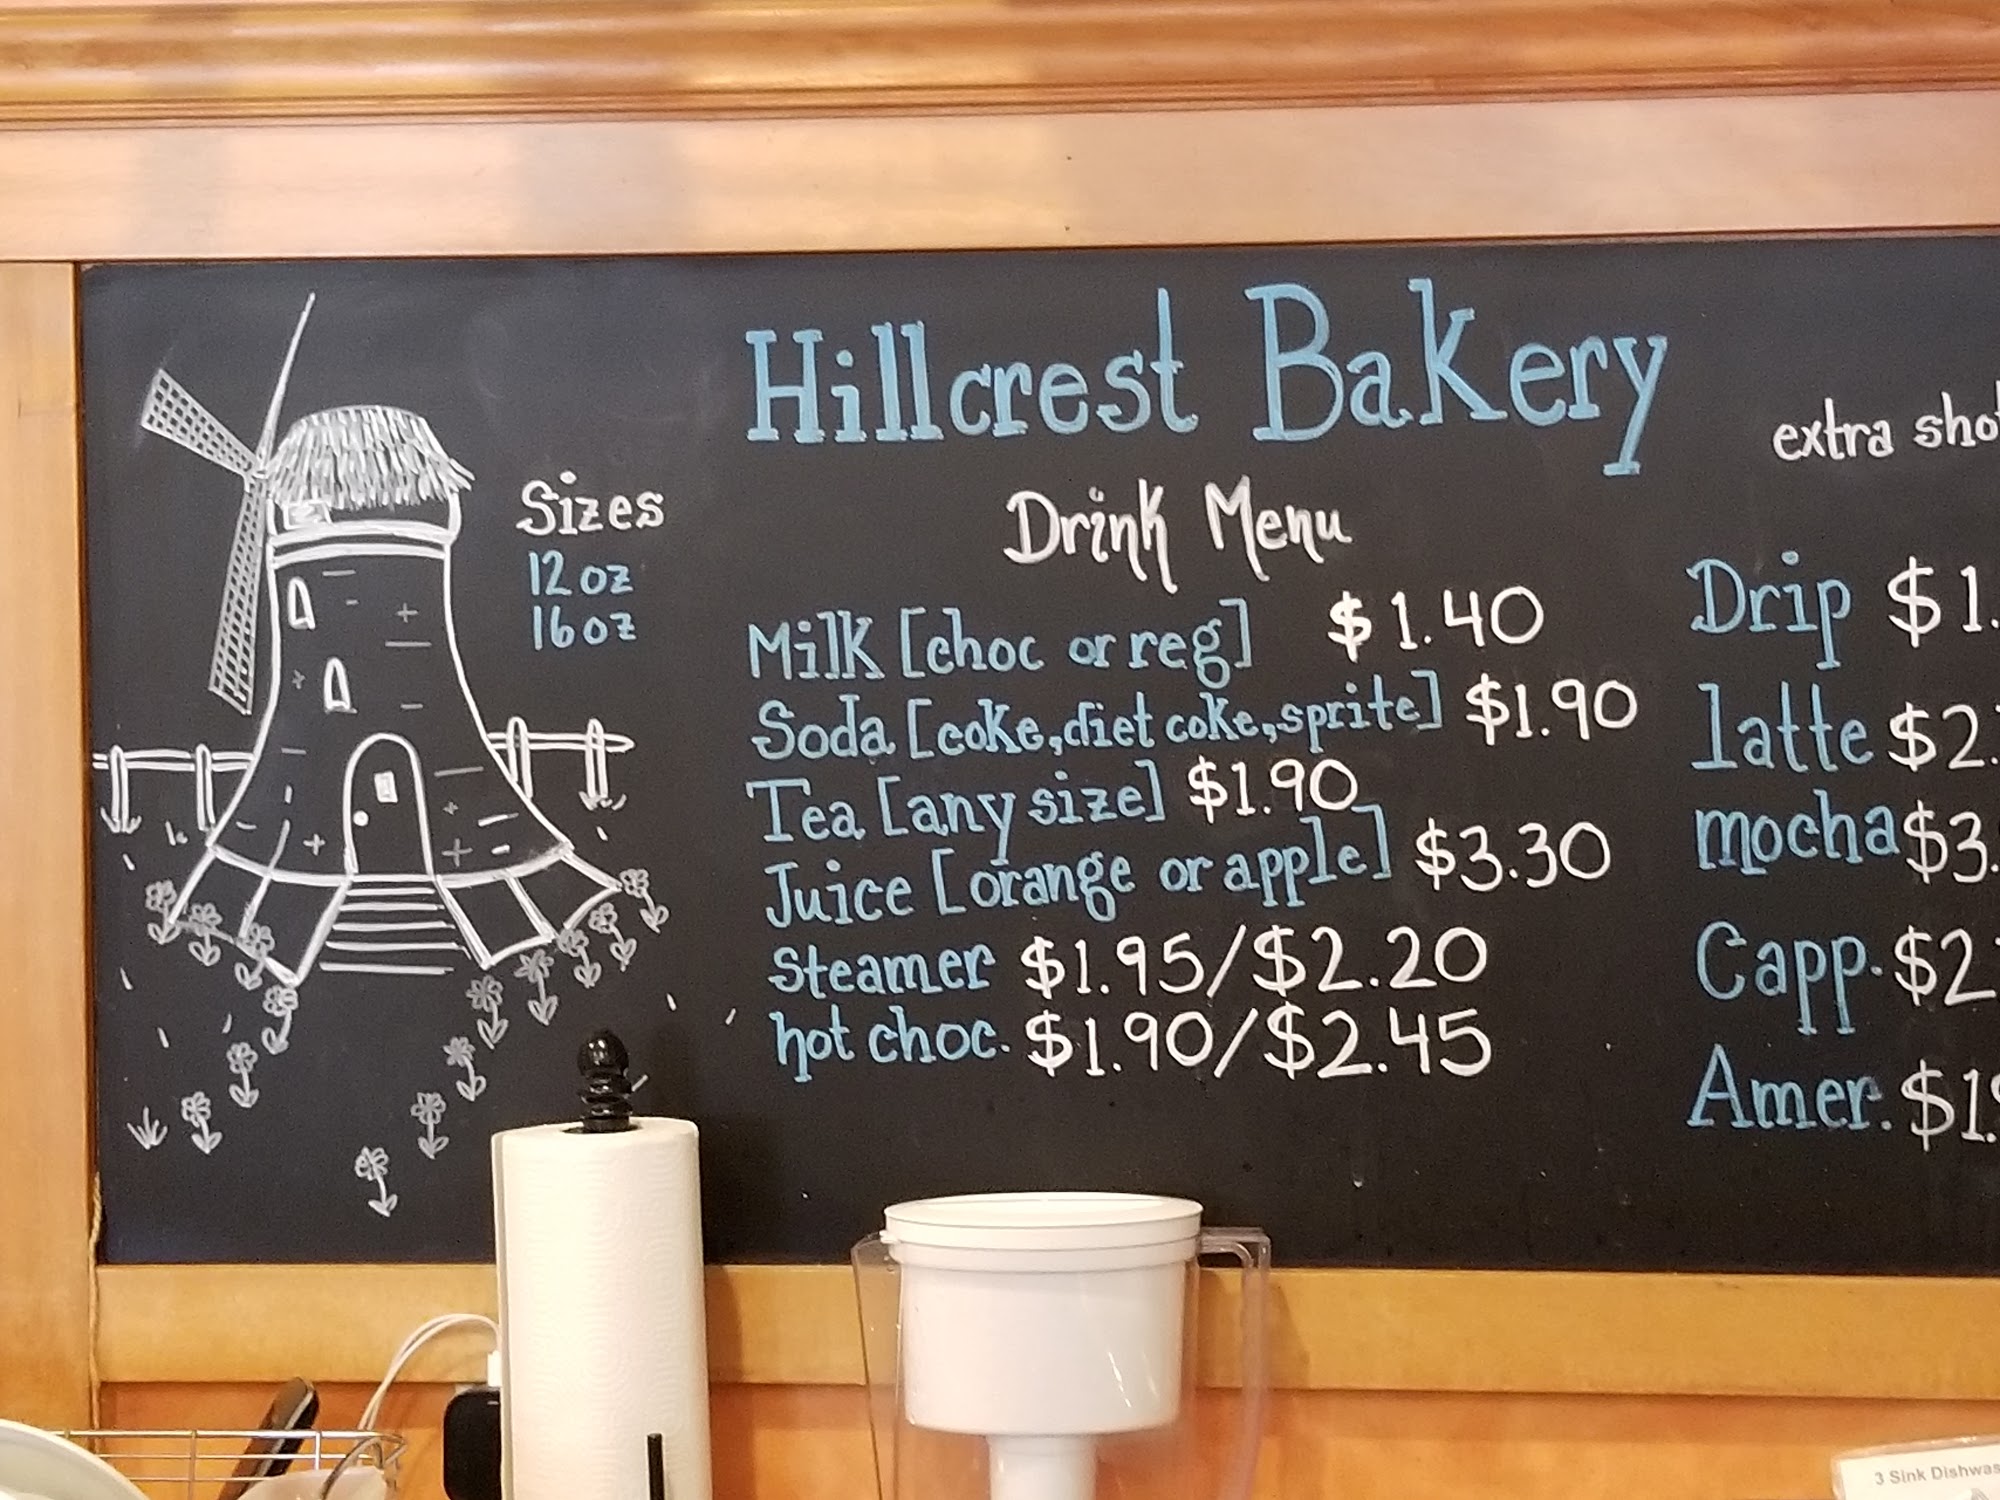 Hillcrest Bakery
Sizes
12 oz
16 oz
Drink Menu
Milk [choc or reg] $1.40
Soda [coke, diet coke, sprite] $1.90
Tea [any size] $1.90
Juice [orange or apple] $3.30
steamer $1.95/$2.20
hot choc. $1.90/$2.45
extra
Drip $1.
latte $2.
mocha $3.
Capp. $2
Amer. $1.
3 Sink